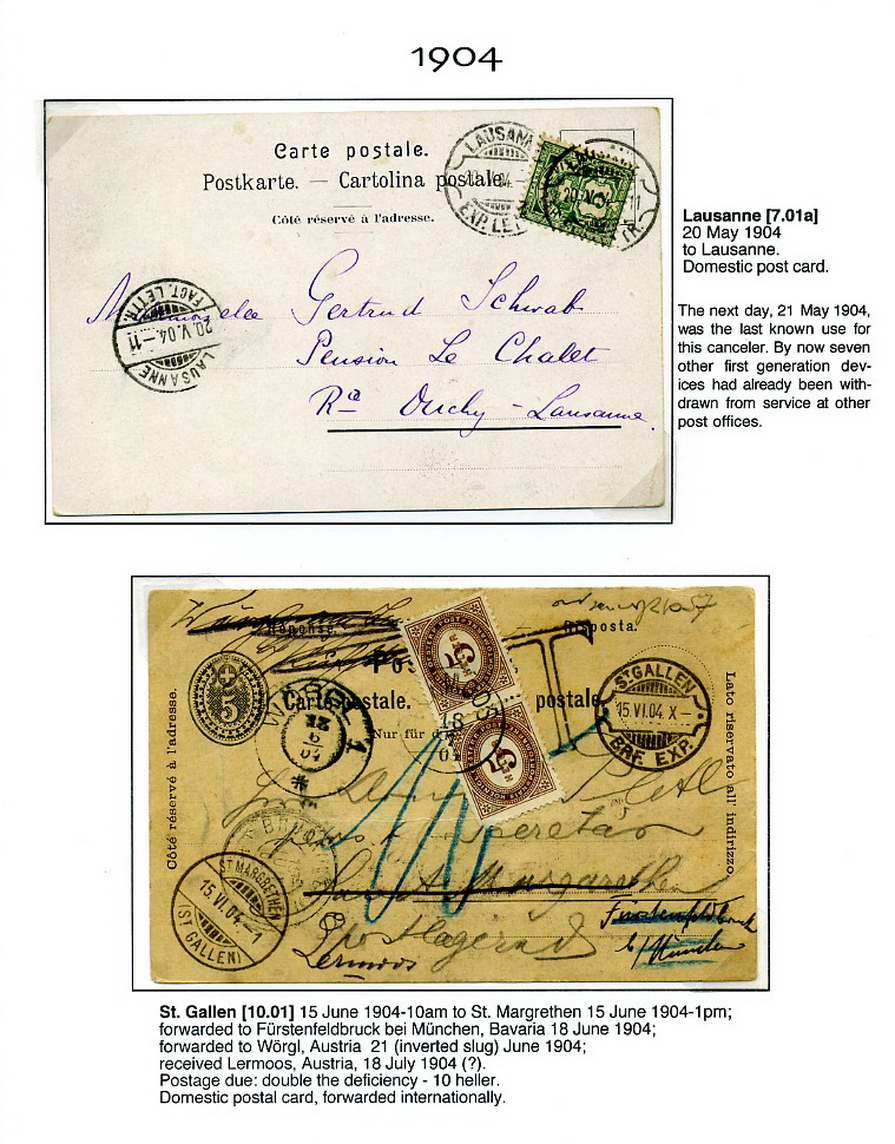 1904
Carte postale.
Postkarte. — Cartolina postale.
Côté réservé à l'adresse.
LAUSANNE
EXP. LETTR.
20 V 04
FACT. LETTR.
20.V.04.–11
LAUSANNE
Mademoiselle Gertrud Schwab
Pension Le Chalet
Ouchy - Lausanne.
Lausanne [7.01a]
20 May 1904
to Lausanne.
Domestic post card.
The next day, 21 May 1904,
was the last known use for
this canceler. By now seven
other first generation dev-
ices had already been with-
drawn from service at other
post offices.
Réponse. Risposta.
Carte postale. postale.
Nur für d
Côté réservé à l'adresse.
Lato riservato all' indirizzo
5
5
5
T
WÖRGL 1
12
6
04
18
04
ST GALLEN
15.VI.04. X –
BRF. EXP.
ST MARGRETHEN
15.VI.04.–1
(ST GALLEN)
10
Secretär
Sankt Margarethen
postlagernd
Fürstenfeldbruck
b/ München
Lermoos
St. Gallen [10.01] 15 June 1904-10am to St. Margrethen 15 June 1904-1pm;
forwarded to Fürstenfeldbruck bei München, Bavaria 18 June 1904;
forwarded to Wörgl, Austria 21 (inverted slug) June 1904;
received Lermoos, Austria, 18 July 1904 (?).
Postage due: double the deficiency - 10 heller.
Domestic postal card, forwarded internationally.